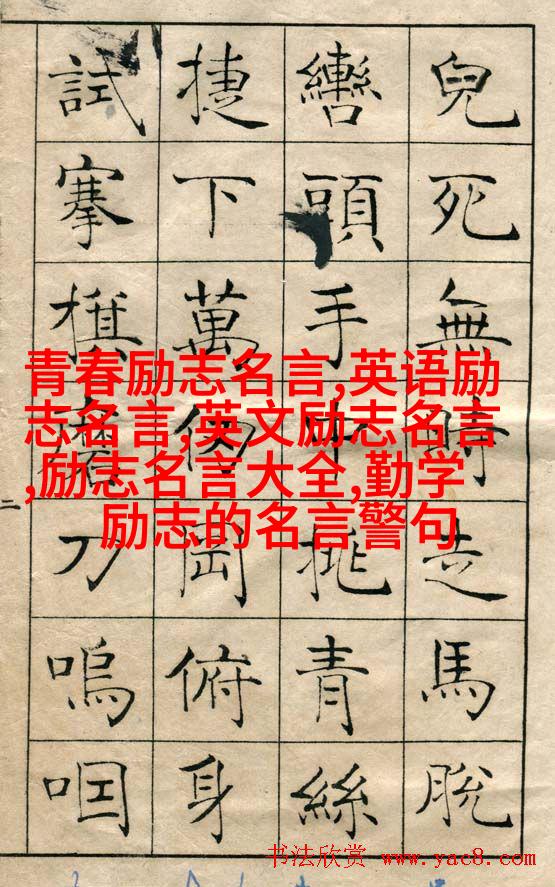 兒死無時走馬脫
轡頭手中挑青絲
捷下萬仞岡俯身
試搴旗刀嗚咽
二
青春励志名言,英语励
志名言,英文励志名言
,励志名言大全,勤学
励志的名言警句
书法欣赏 www.yac8.com